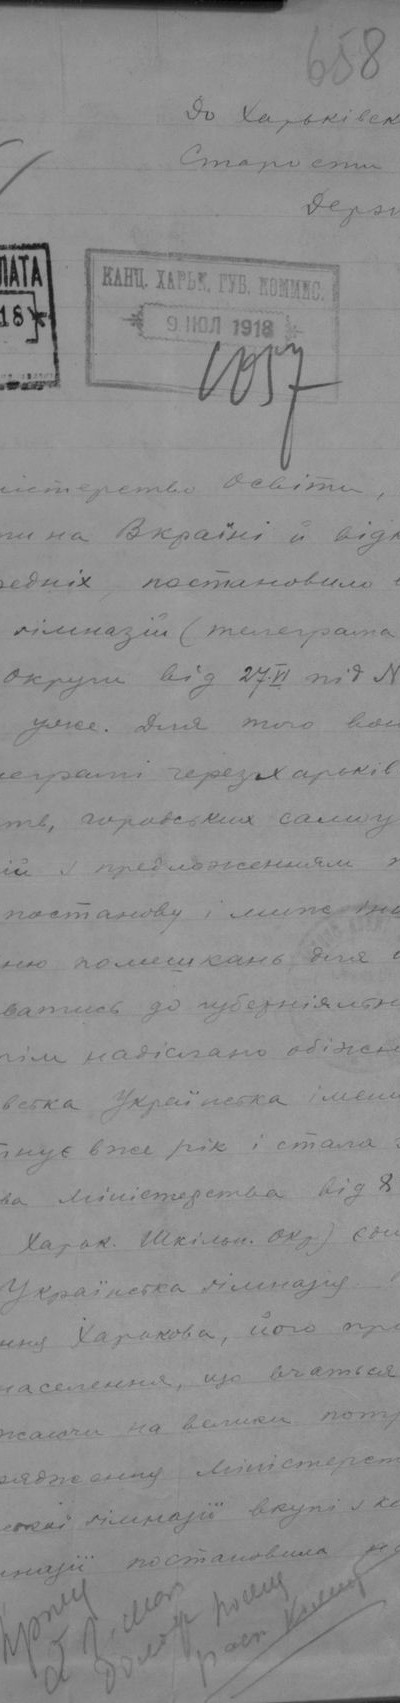 658
До Харьківск
Старости
Держ
ПАТА
18
КАНЦ. ХАРЬК. ГУБ. КОММИС.
9 ИЮЛ 1918
1057
ністерство Освіти,
ти на Вкраїні й відк
редніх, постановило
гімназій (телеграма
Округи від 27.VI під N
уже. Для того
леграмі через Харьків
ств, горовських самоу
ій з предложенням
постанову і
ню помешкань для
ватись до губерніяльн
тім надіслано обіжн
вська Українська імени
тнує вже рік і стала
ва Міністерства від 8
Харьк. Шкільн. Окр)
Українська гімназія
ння Харькова, його
населення, що вчаться
жаючи на велики потр
рядження Міністерст
ської гімназії вкупі з
мназії постановила